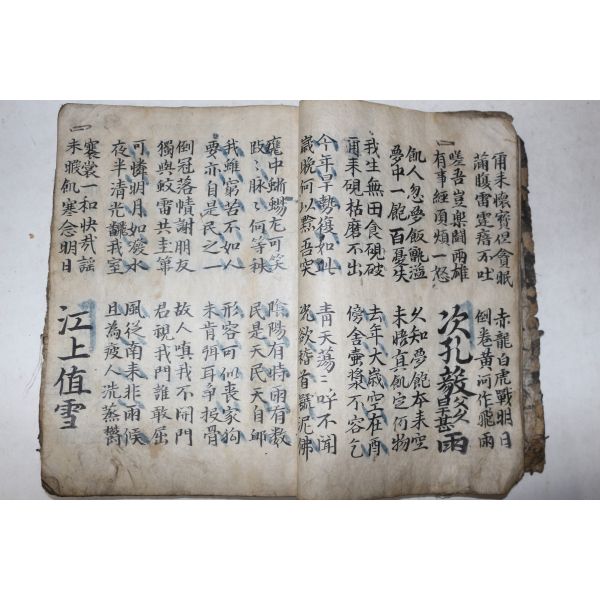 爾来懷寶但貪眠
滿腹雷霆瘖不吐
赤龍白虎戰明日
倒卷黃河作飛雨
嗟吾豈樂鬪兩雄
有事經須煩一怒
次孔毅父久旱甚雨
飢人忽夢飯甑溢
夢中一飽百憂失
久知夢飽本来空
未悟真飢定何物
我生無田食硯破
爾来硯枯磨不出
去年大歲空在酉
傍舍壺漿不容乞
今年旱勢復如此
歲晚何以黔吾突
青天蕩〻呼不聞
況欲稽首號泥佛
甕中蜥蜴尤可笑
跂〻脉〻何等秩
陰陽有時雨有數
民是天民天自卹
我雖窮苦不如人
要亦自是民之一
形容可似喪家狗
未肯弭耳爭投骨
倒冠落幘謝朋友
獨與蚊雷共圭篳
故人嗔我不開門
君視我門誰敢屈
可憐明月如潑水
夜半清光翻我室
風從南来非雨候
且為疲人洗蒸欝
褰裳一和快哉謠
未暇飢寒念明日
江上值雪